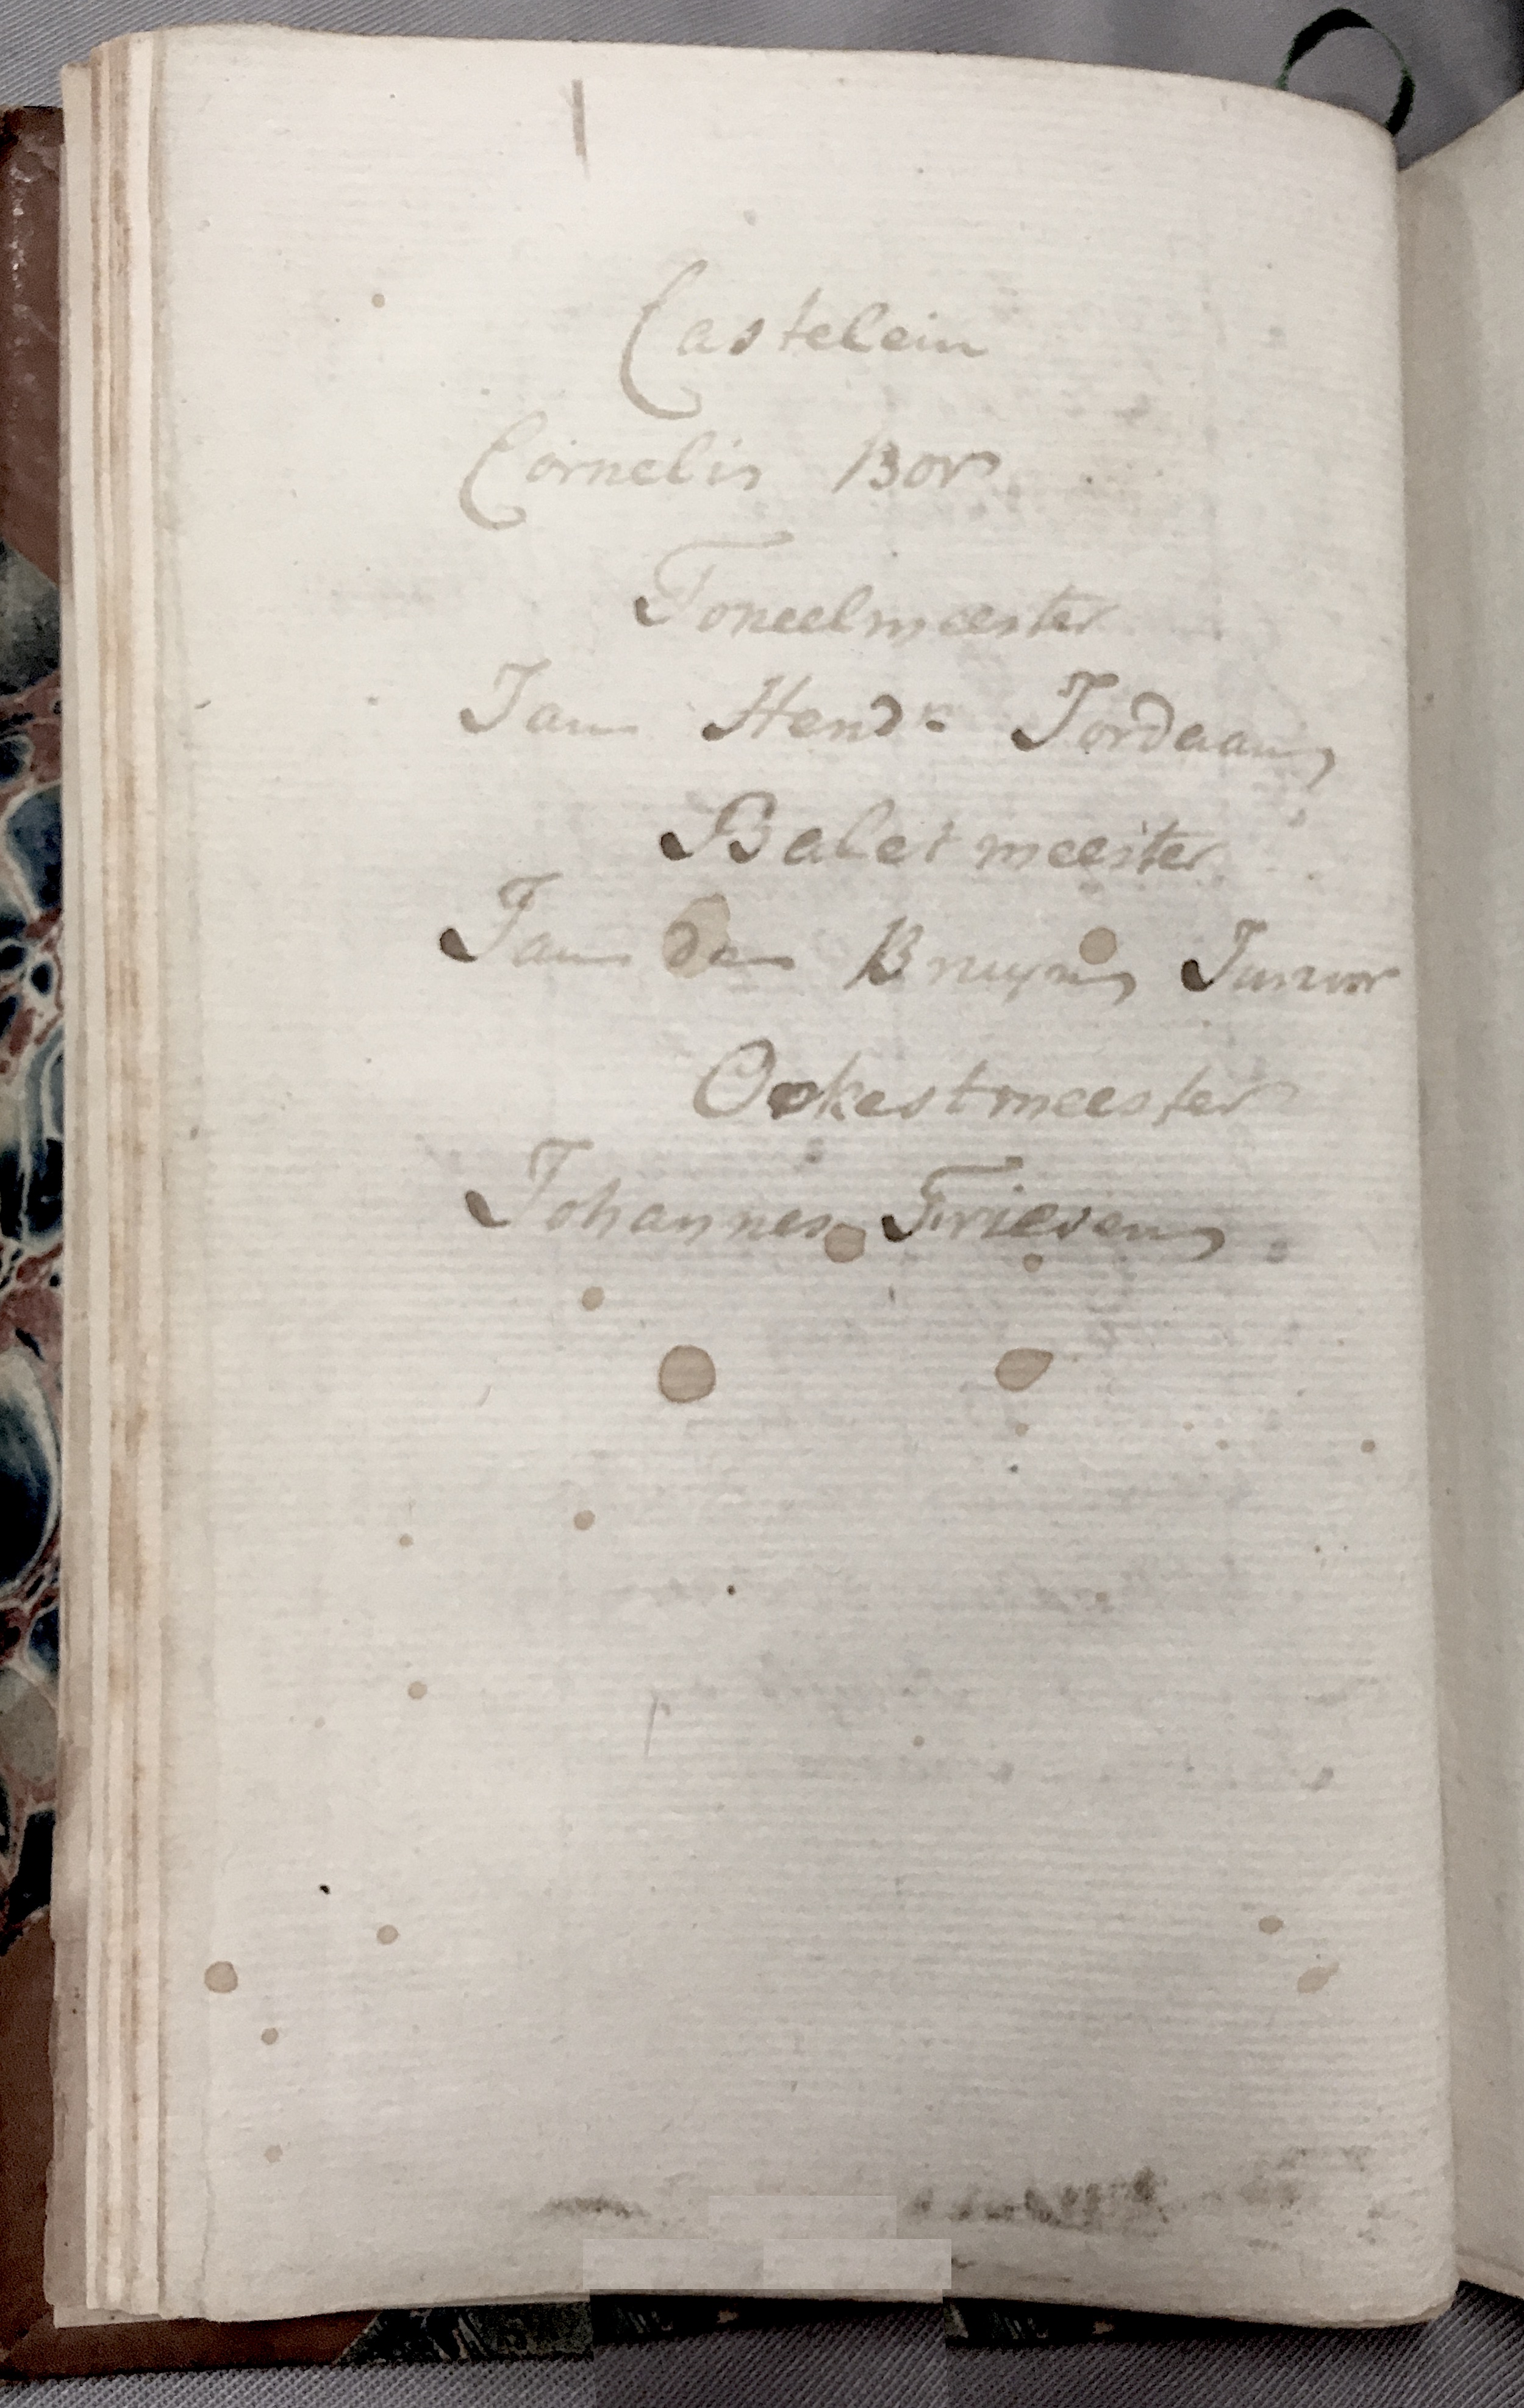 Castelein
Cornelis Bor
Toneelmeester
Jan Hendk Jordaan
Balet meester
Jan de Bruyn Junior
Orkestmeester
Johannes Friesen